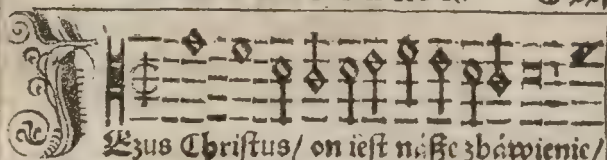 JEzus Christus/ on iest náße zbáwienie/